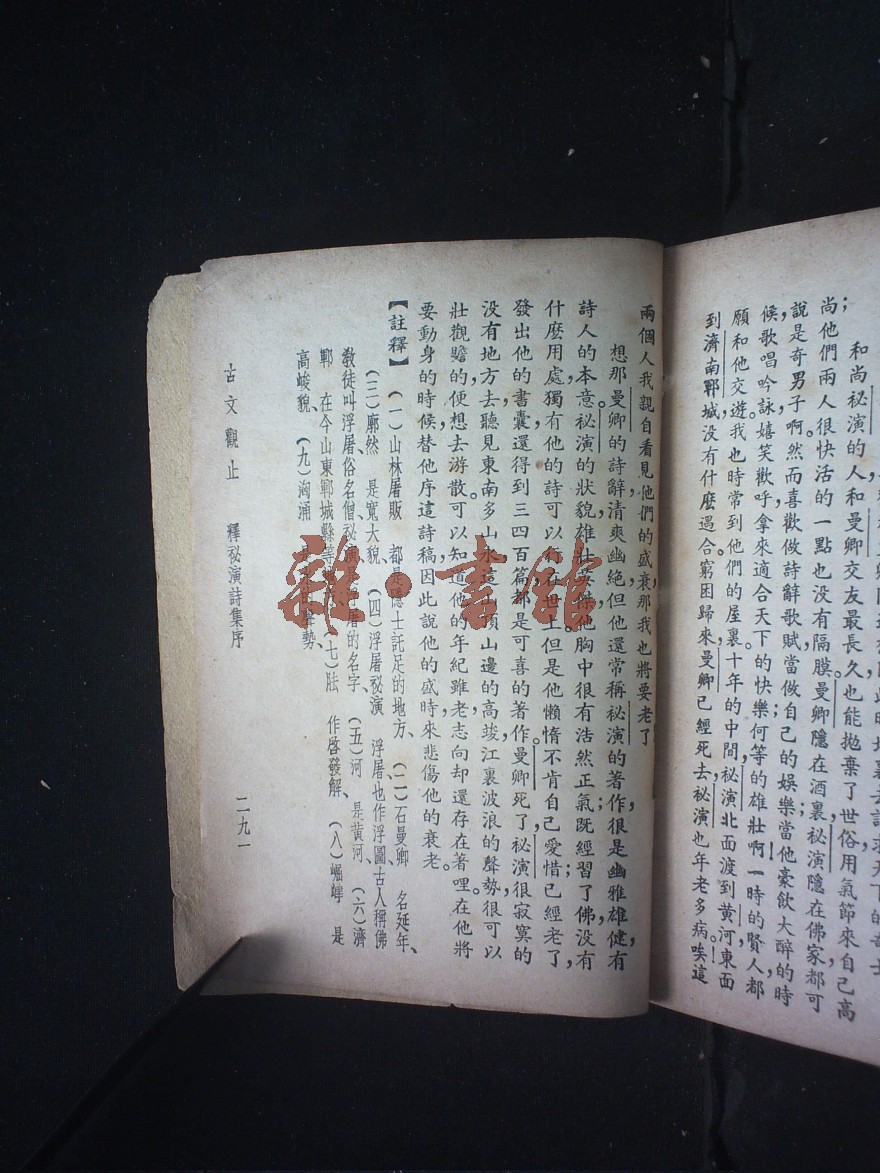 和尚祕演的人和曼卿交友最長久也能拋棄了世俗用氣節來自己高
尚他們兩人很快活的一點也没有隔膜。曼卿隱在酒裏祕演隱在佛家都可
說是奇男子啊。然而喜歡做詩辭歌賦當做自己的娛樂；當他豪飲大醉的時
候，歌唱吟詠，嬉笑歡呼，拿來適合天下的快樂何等的雄壯啊一時的賢人都
願和他交遊。我也時常到他們的屋裏。十年的中間，祕演北面渡到黃河，東面
到濟南鄆城，没有什麽遇合。窮困歸來，曼卿已經死去，祕演也年老多病。唉！這
兩個人我親自看見他們的盛衰，那我也將要老了
想那曼卿的詩辭清爽幽絕，但他還常稱祕演的著作，很是幽雅雄健，有
詩人的本意。祕演的狀貌，雄壯英傑，他胸中很有浩然正氣；既經習了佛，没有
什麽用處，獨有他的詩可以行在世上。但是他懶惰，不肯自己愛惜；已經老了，
發出他的書囊，還得到三四百篇，都是可喜的著作。曼卿死了，祕演很寂寞的
没有地方去，聽見東南多山水，這山頂山邊的高竣，江裏波浪的聲勢，很可以
壯觀瞻的，便想去游散。可以知道他的年紀雖老，志向却還存在著哩。在他將
要動身的時候，替他序這詩稿，因此說他的盛時，來悲傷他的衰老。
【註釋】（一）山林屠販　都是隱士託足的地方、（二）石曼卿　名延年、
（三）廓然　是寬大貌、（四）浮屠祕演　浮屠也作浮圖、古人稱佛
教徒叫浮屠、俗名僧、祕演浮屠的名字、（五）河　是黃河、（六）濟
鄆　在今山東鄆城縣等（七）胠　作啓發解、（八）崛㟧　是
高峻貌、（九）洶涌　聲勢、
古文觀止　釋祕演詩集序　二九一
雜·書館